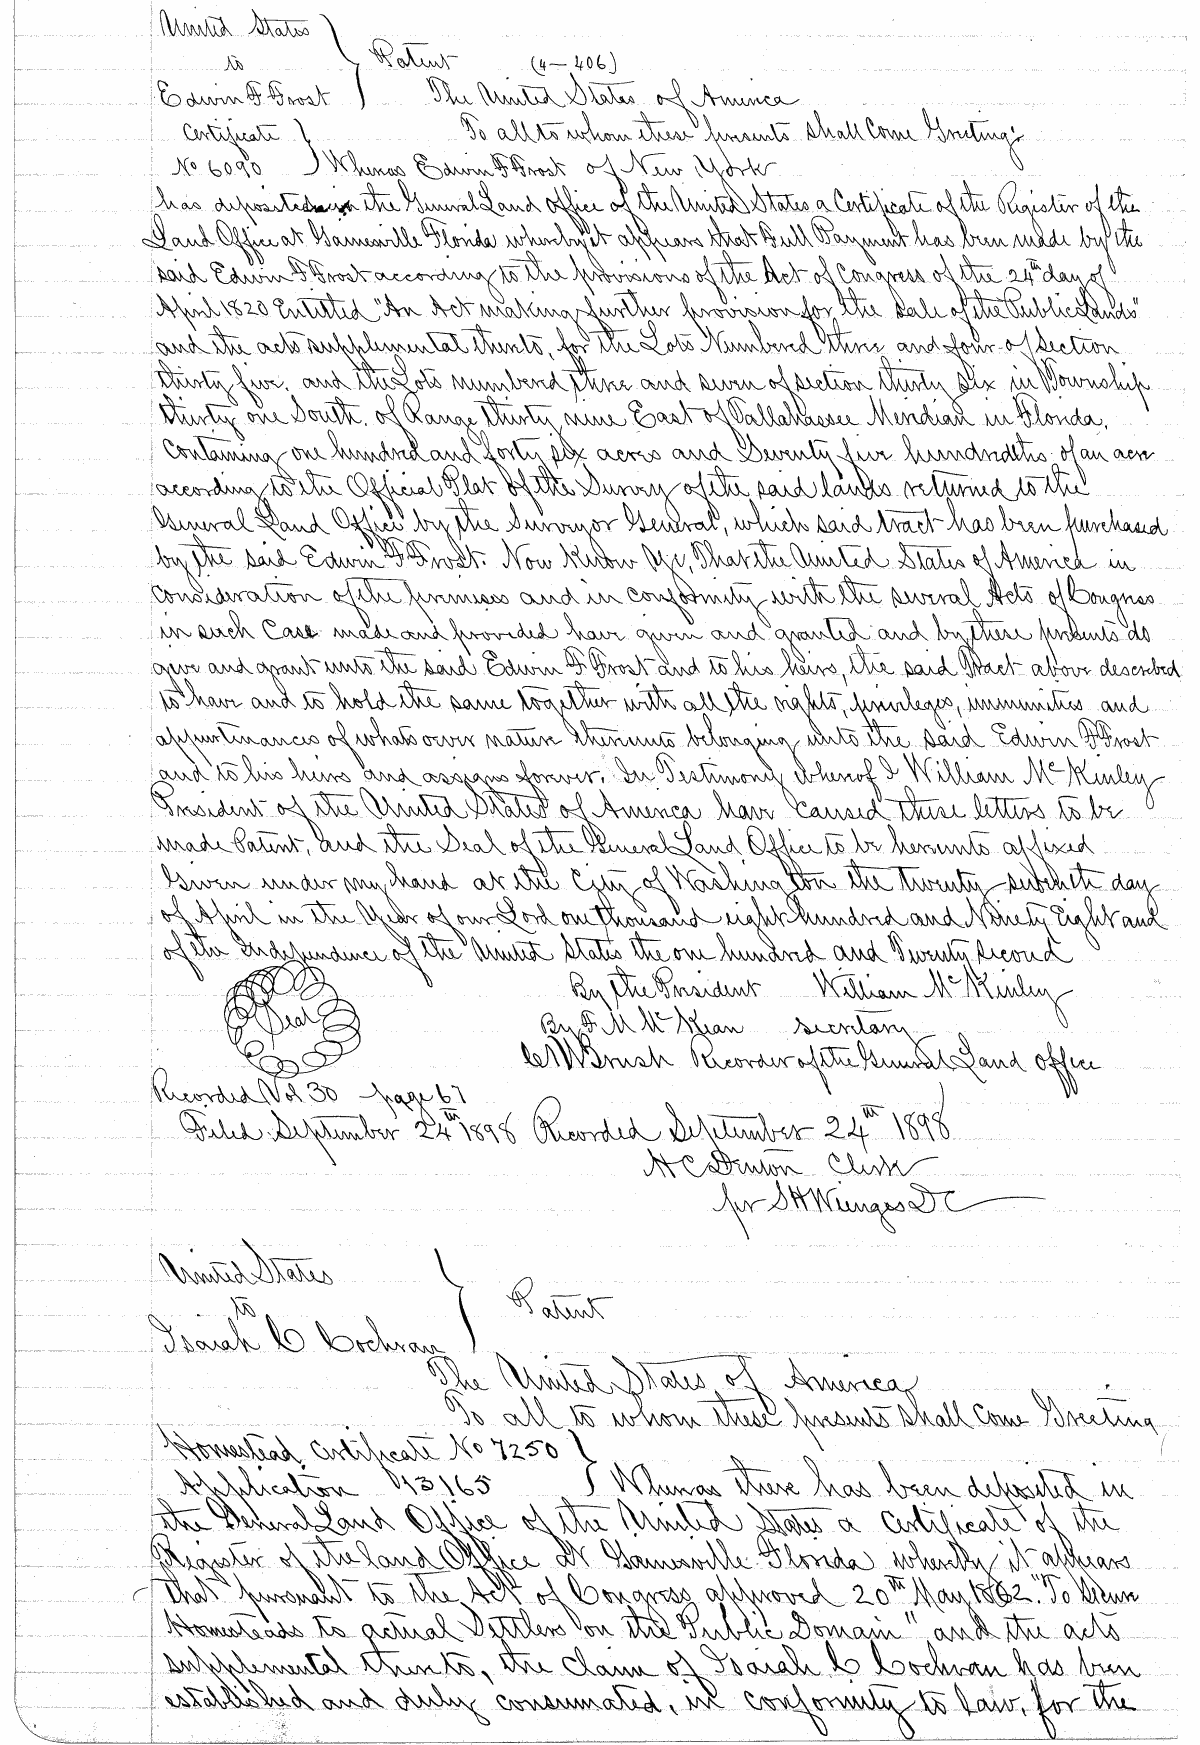 United States
to } Patent (4-406)
Edwin F Frost The United States of America
Certificate } To all to whom these presents shall Come Greeting:
No 6090 } Whereas Edwin F Frost of New York
has deposited in the General Land Office of the United States a Certificate of the Register of the
Land Office at Gainesville Florida whereby it appears that Full Payment has been made by the
said Edwin F Frost according to the provisions of the Act of Congress of the 24th day of
April 1820 Entitled "An Act making further provision for the sale of the Public Lands"
and the acts supplemental thereto, for the Lots Numbered three and four of Section
thirty five, and the Lots numbered three and seven of section thirty six in Township
thirty one South, of Range thirty nine East of Tallahassee Meridian in Florida,
Containing one hundred and forty six acres and Seventy five hundredths of an acre
according to the Official Plat of the Survey of the said lands returned to the
General Land Office by the Surveyor General, which said tract has been purchased
by the said Edwin F Frost. Now Know Ye, That the United States of America in
Consideration of the premises and in conformity with the several Acts of Congress
in such Case made and provided have given and granted and by these presents do
give and grant unto the said Edwin F Frost and to his heirs, the said Tract above described
to have and to hold the same together with all the rights, privileges, immunities and
appurtinances of whatsoever nature thereunto belonging unto the said Edwin F Frost
and to his heirs and assigns forever. In Testimony whereof I William McKinley
President of the United States of America have caused these letters to be
made Patent, and the Seal of the General Land Office to be hereunto affixed
Given under my hand at the City of Washington the twenty seventh day
of April in the Year of our Lord one thousand eight hundred and Ninety Eight and
of the Independence of the United States the one hundred and Twenty second
Seal
By the President William McKinley
By F M McKean secretary
C W Brush Recorder of the General Land Office
Recorded Vol 30 page 67
Filed September 24th 1898 Recorded September 24th 1898
A C Denton Clerk
per DC
United States
to } Patent
Isaiah C Cochran
The United States of America
To all to whom these presents shall Come Greeting
Homestead Certificate No 7250 }
Application 13165 } Whereas there has been deposited in
the General Land Office of the United States a Certificate of the
Register of the land Office at Gainesville Florida whereby it appears
that pursuant to the Act of Congress approved 20th May 1862. "To Secure
Homesteads to actual Settlers on the Public Domain" and the acts
supplemental thereto, the claim of Isaiah C Cochran has been
established and duly consumated, in conformity to law, for the